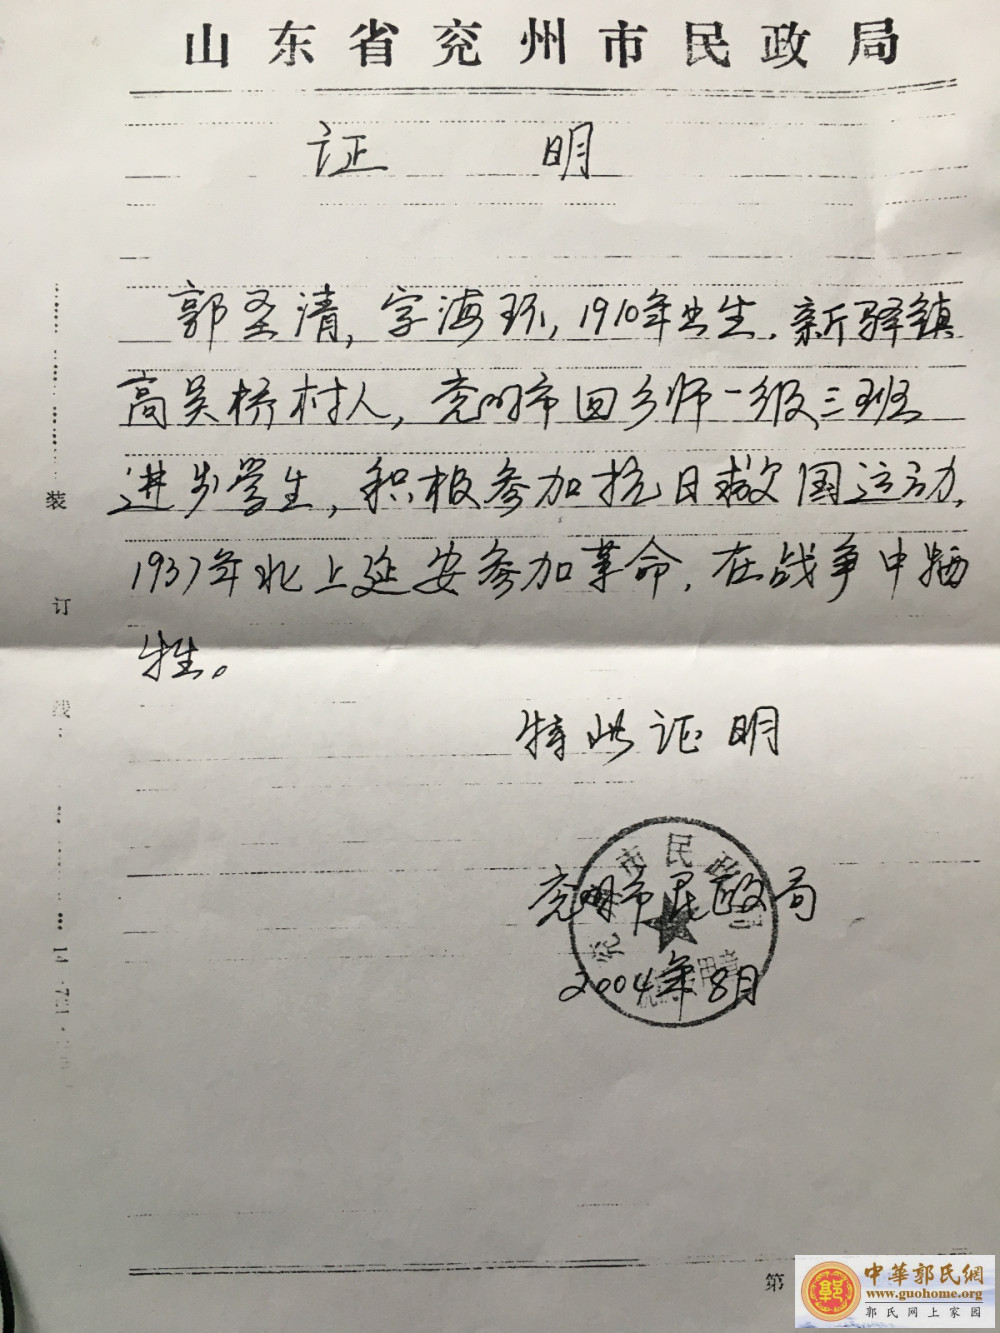 山东省兖州市民政局
证明
郭圣清，字海环，1910年出生，新驿镇
高吴桥村人，兖州市四乡师一级三班
进步学生，积极参加抗日救国运动，
1937年北上延安参加革命，在战争中牺
牲。
特此证明
兖州市民政局
2004年8月
装
订
线
第
中華郭氏網
www.guohome.org
郭氏网上家园